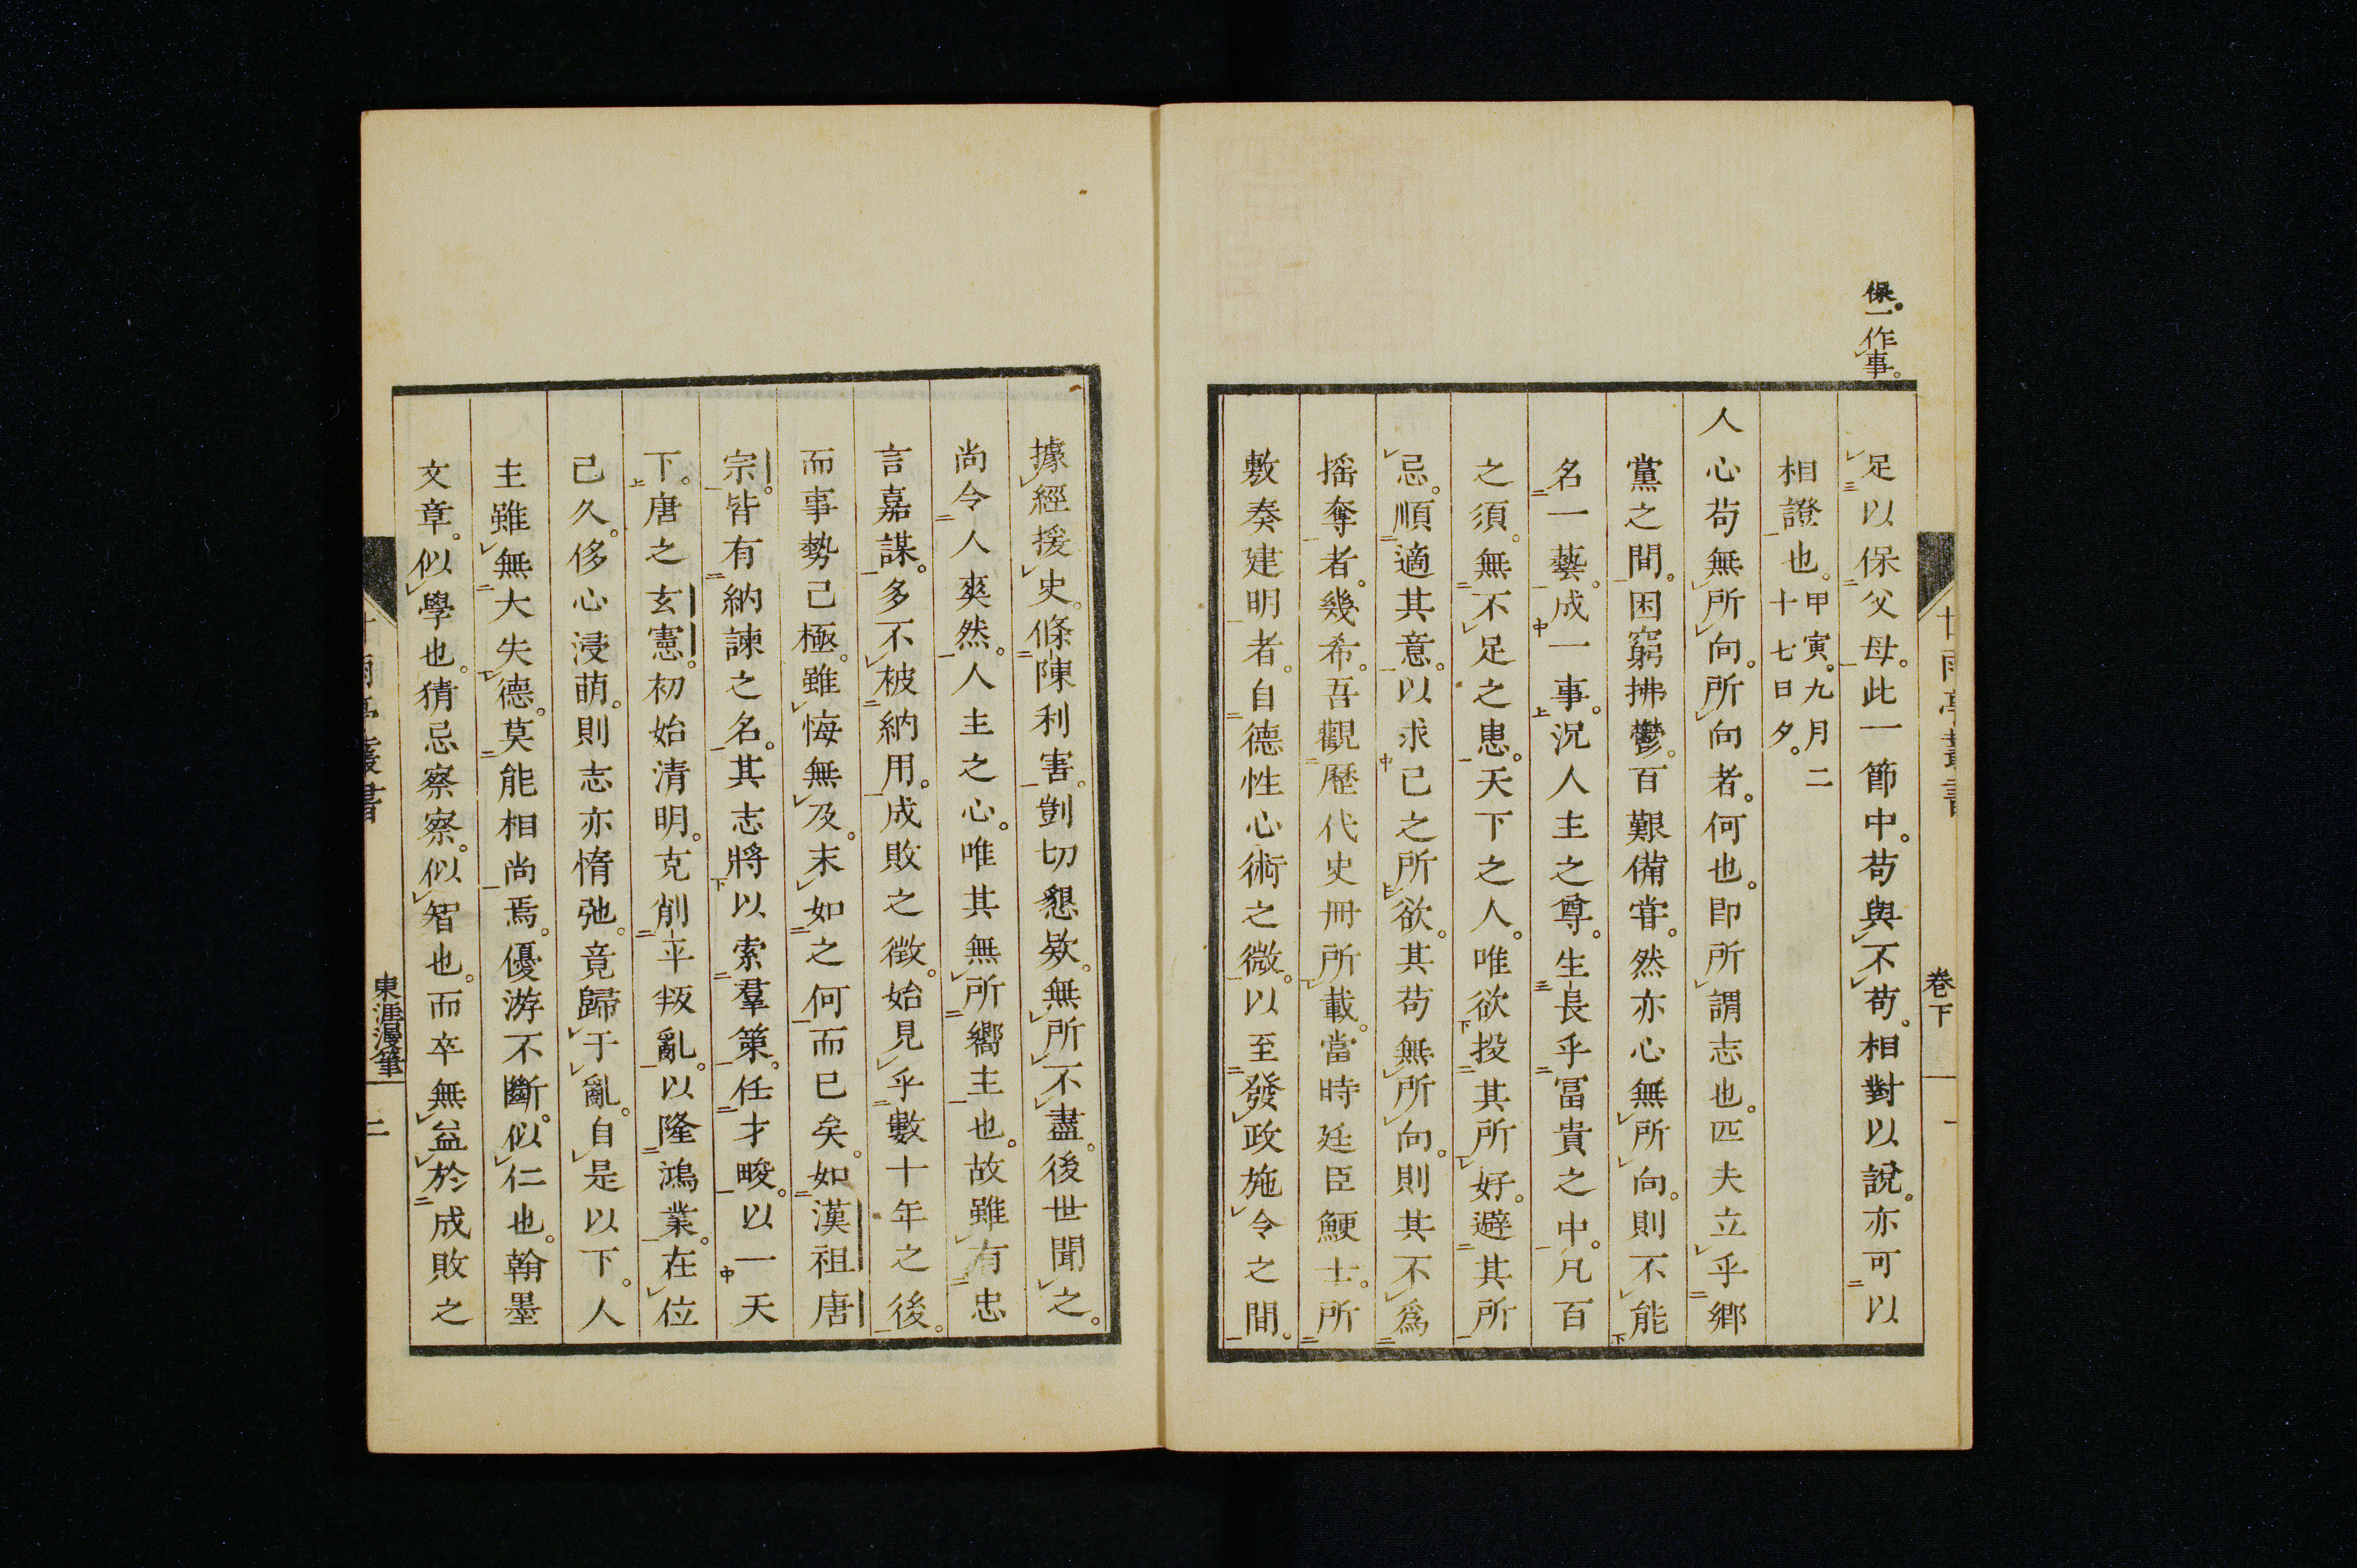 保。一作事。
足以保父母。此一節中。苟與不苟。相對以說。亦可以
相證也。甲寅。九月二
十七日夕。
人心苟無所向。所向者。何也。卽所謂志也。匹夫立乎鄉
黨之間。困窮拂鬱。百艱備嘗。然亦心無所向。則不能
名一藝。成一事。況人主之尊。生長乎冨貴之中。凡百
之須。無不足之患。天下之人。唯欲投其所好。避其所
忌。順適其意。以求己之所欲。其苟無所向。則其不爲
搖奪者。幾希。吾觀歷代史冊所載。當時廷臣鯁士。所
敷奏建明者。自德性心術之微。以至發政施令之間。
卷下
據經援史。條陳利害。剴切懇欵。無所不盡。後世聞之。
尚令人爽然。人主之心。唯其無所嚮主也。故雖有忠
言嘉謀。多不被納用。成敗之徵。始見乎數十年之後。
而事勢已極。雖悔無及。末如之何而已矣。如漢祖唐
宗。皆有納諫之名。其志將以索羣策。任才畯。以一天
下。唐之玄憲。初始清明。克削平叛亂。以隆鴻業。在位
已久。侈心浸萌。則志亦惰弛。竟歸于亂。自是以下。人
主雖無大失德。莫能相尚焉。優游不斷。似仁也。翰墨
文章。似學也。猜忌察察。似智也。而卒無益於成敗之
東涯漫筆
二